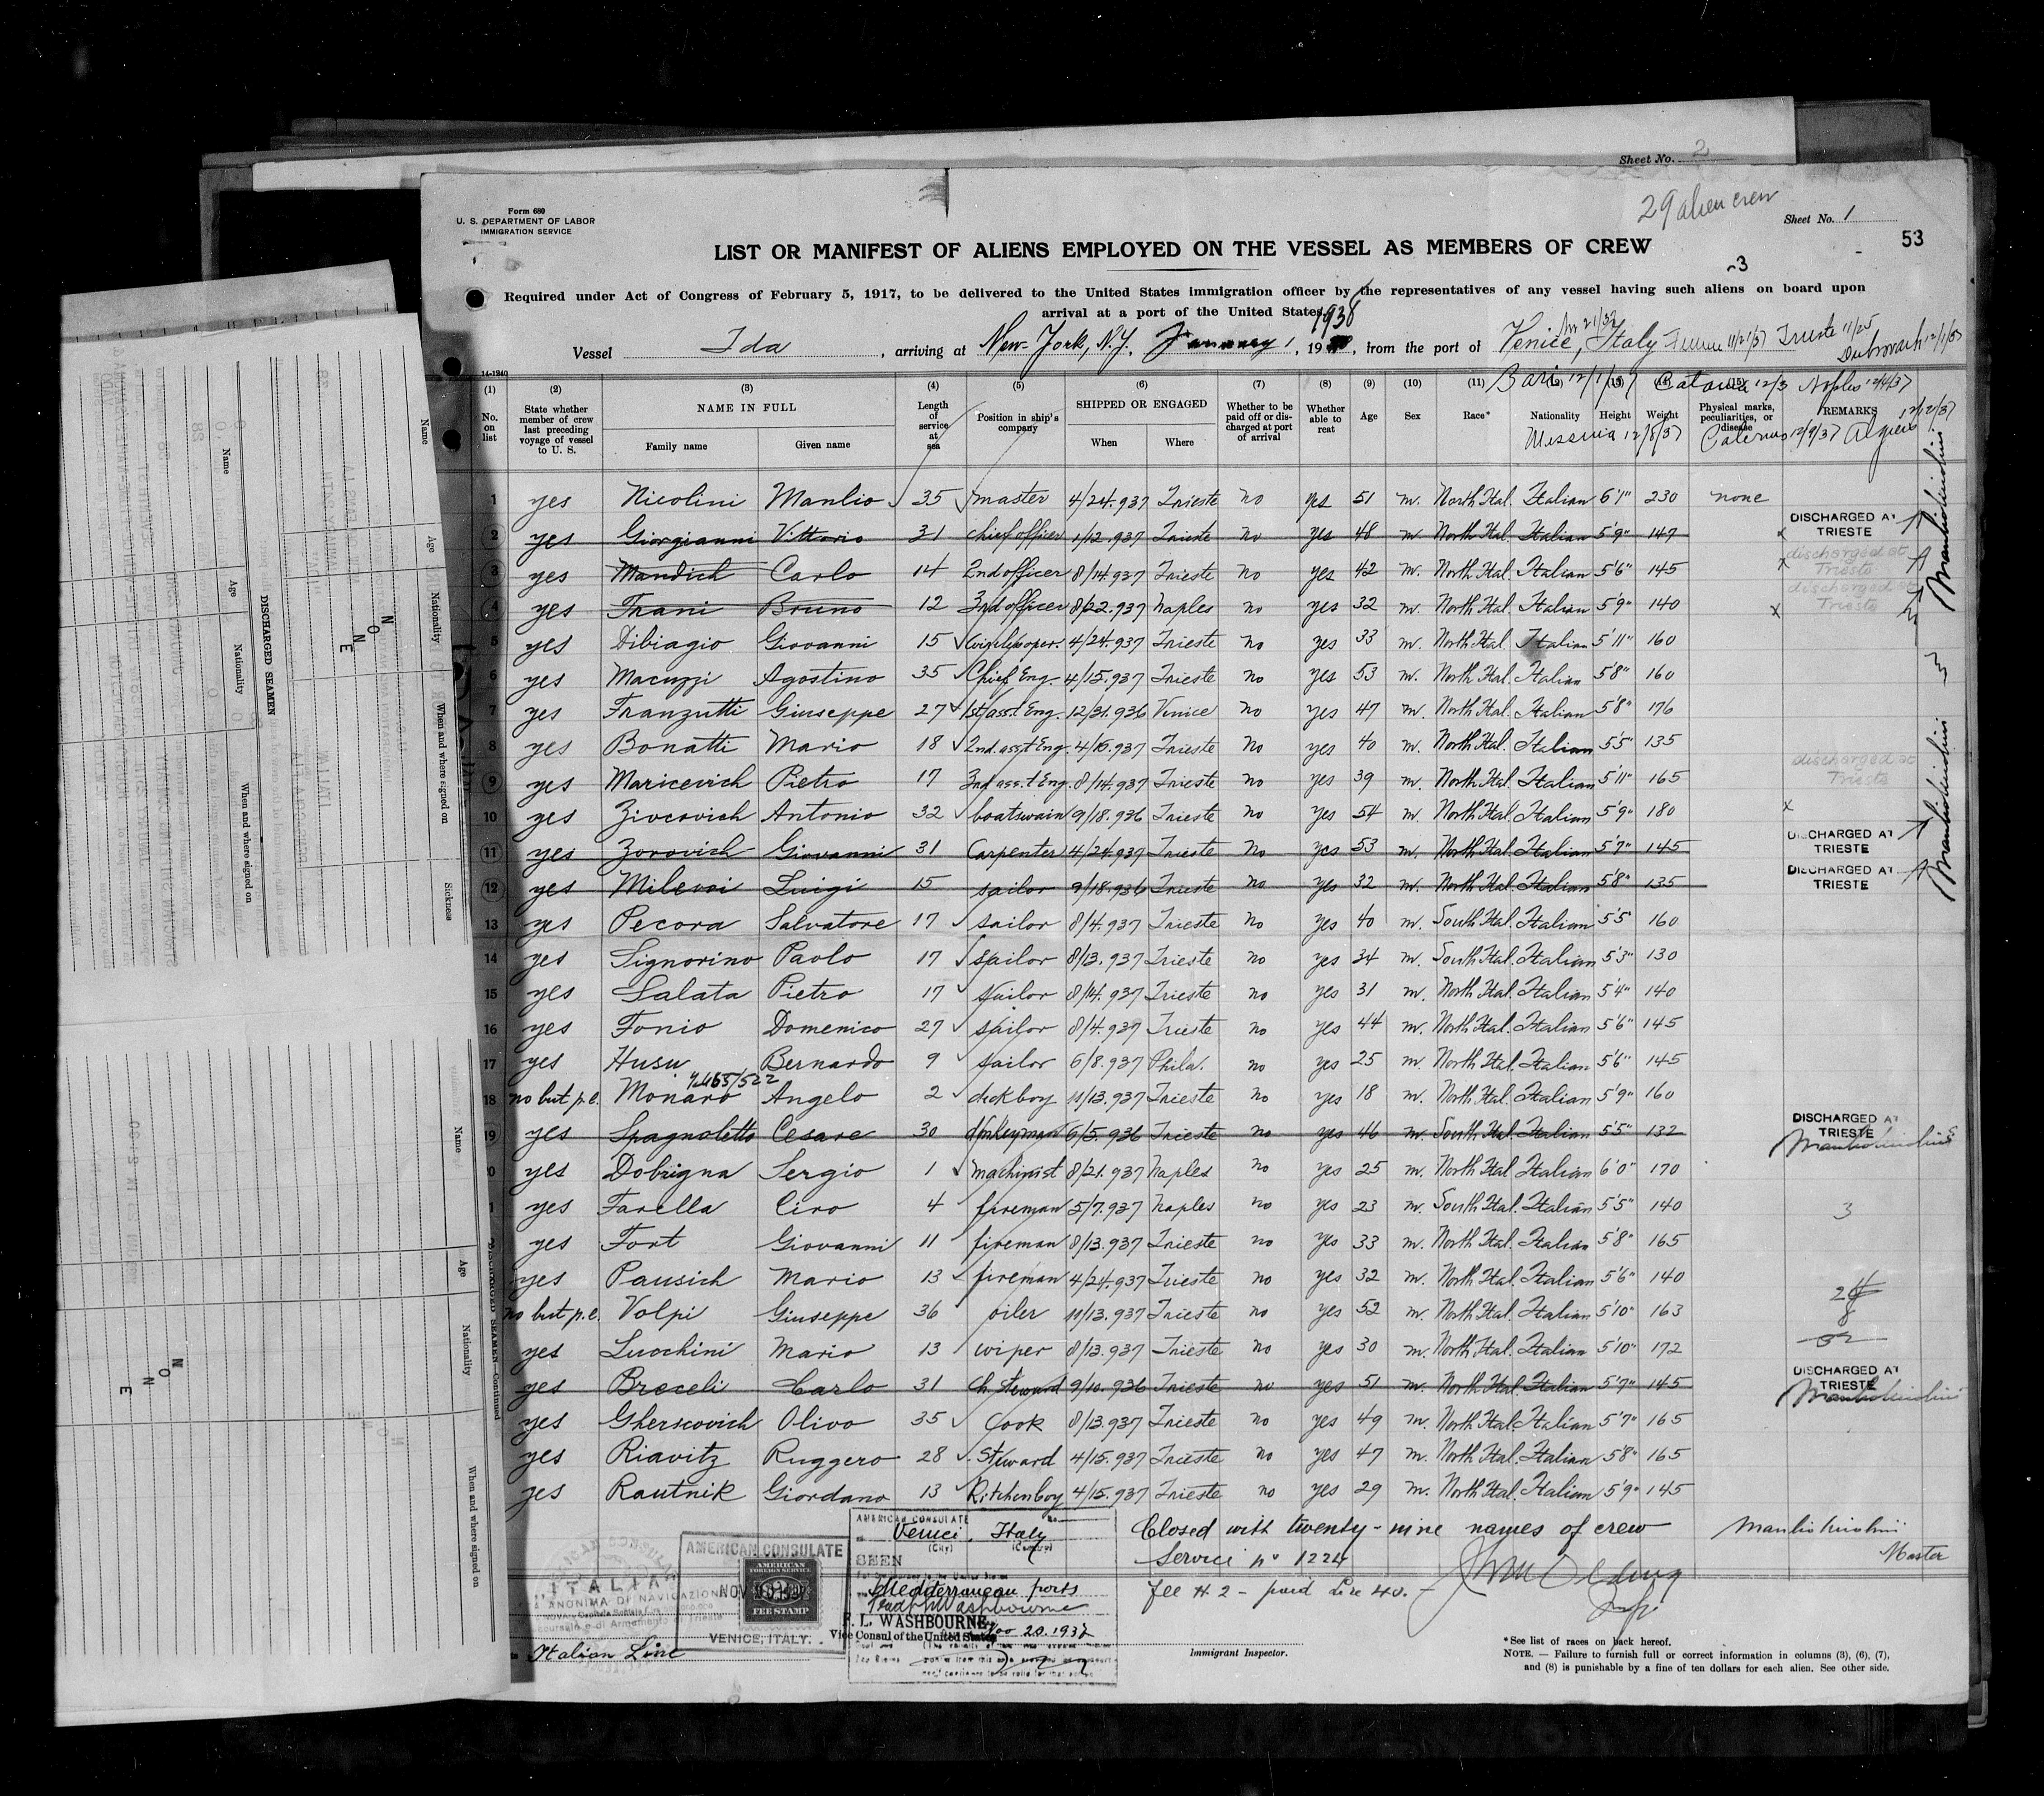 Sheet No. 2
29 alien crew
Form 680
U. S. DEPARTMENT OF LABOR
IMMIGRATION SERVICE
Sheet No. 1
53
LIST OR MANIFEST OF ALIENS EMPLOYED ON THE VESSEL AS MEMBERS OF CREW
3
Required under Act of Congress of February 5, 1917, to be delivered to the United States immigration officer by the representatives of any vessel having such aliens on board upon
arrival at a port of the United States
1938
Vessel Ida, arriving at New York, N.Y. January 1, 19, from the port of Venice, Italy Fiume 11/21/37 Trieste 11/25
Dubrovnik 12/1/37
14-1240
Bari 12/1/37 Catania 12/3 Naples 12/4/37
Messina 12/8/37 Palermo 12/9/37 Algiers 12/12/37
(1) (2) (3) (4) (5) (6) (7) (8) (9) (10) (11) (12) (13) (14) (15)
No. on list
State whether member of crew last preceding voyage of vessel to U. S.
NAME IN FULL
Family name
Given name
Length of service at sea
Position in ship's company
SHIPPED OR ENGAGED
When
Where
Whether to be paid off or discharged at port of arrival
Whether able to read
Age
Sex
Race*
Nationality
Height
Weight
Physical marks, peculiarities, or disease
REMARKS
1 yes Nicolini Manlio 35 master 4/24.937 Trieste no yes 51 m. North Ital. Italian 6'1" 230 none
2 yes Giorgianni Vittorio 31 chief officer 1/12.937 Trieste no yes 48 m North Ital. Italian 5'9" 147 x DISCHARGED AT TRIESTE
3 yes Mandich Carlo 14 2nd officer 8/14.937 Trieste no yes 42 m. North Ital. Italian 5'6" 145 x discharged at Trieste
4 yes Frani Bruno 12 3rd officer 8/22.937 Naples no yes 32 m. North Ital. Italian 5'9" 140 x discharged at Trieste
5 yes Dibiagio Giovanni 15 4/24.937 Trieste no yes 33 m. North Ital. Italian 5'11" 160
6 yes Macuzzi Agostino 35 Chief Eng. 4/15.937 Trieste no yes 53 m. North Ital. Italian 5'8" 160
7 yes Franzutti Giuseppe 27 1st ass.t Eng. 12/31.936 Venice no yes 47 m. North Ital. Italian 5'8" 176
8 yes Bonatti Mario 18 2nd. ass.t Eng. 4/15.937 Trieste no yes 40 m. North Ital. Italian 5'5" 135
9 yes Maricevich Pietro 17 3nd ass.t Eng. 8/14.937 Trieste no yes 39 m. North Ital. Italian 5'11" 165 discharged at Trieste
10 yes Zivcovich Antonio 32 boatswain 9/18.936 Trieste no yes 54 m. North Ital. Italian 5'9" 180 x
11 yes Zorovich Giovanni 31 Carpenter 4/24.937 Trieste no yes 53 m. North Ital. Italian 5'7" 145 DISCHARGED AT TRIESTE
12 yes Milevoi Luigi 15 sailor 9/18.936 Trieste no yes 32 m. North Ital. Italian 5'8" 135 DISCHARGED AT TRIESTE
13 yes Pecora Salvatore 17 sailor 8/4.937 Trieste no yes 40 m. South Ital. Italian 5'5" 160
14 yes Signorino Paolo 17 sailor 8/13.937 Trieste no yes 34 m. South Ital. Italian 5'3" 130
15 yes Salata Pietro 17 sailor 8/14.937 Trieste no yes 31 m. North Ital. Italian 5'4" 140
16 yes Fonio Domenico 27 sailor 8/4.937 Trieste no yes 44 m. North Ital. Italian 5'6" 145
17 yes Husu Bernardo 9 sailor 6/8.937 Phila. no yes 25 m. North Ital. Italian 5'6" 145
18 no but p.e. Monaro Angelo 2 deckboy 11/13.937 Trieste no yes 18 m. North Ital. Italian 5'9" 160
19 yes Spagnoletto Cesare 30 donkeyman 6/5.936 Trieste no yes 46 m. South Ital. Italian 5'5" 132 DISCHARGED AT TRIESTE
20 yes Dobrigna Sergio 1 machinist 8/21.937 Naples no yes 25 m. North Ital. Italian 6'0" 170
1 yes Farella Ciro 4 fireman 5/7.937 Naples no yes 23 m. South Ital. Italian 5'5" 140 3
yes Fort Giovanni 11 fireman 8/13.937 Trieste no yes 33 m. North Ital. Italian 5'8" 165
yes Pausich Mario 13 fireman 4/24.937 Trieste no yes 32 m. North Ital. Italian 5'6" 140
no but p.e. Volpi Giuseppe 36 oiler 11/13.937 Trieste no yes 52 m. North Ital. Italian 5'10" 163
yes Luochini Mario 13 wiper 8/13.937 Trieste no yes 30 m. North Ital. Italian 5'10" 172
yes Broceli Carlo 31 Ch. Steward 9/10.936 Trieste no yes 51 m. North Ital. Italian 5'7" 145 DISCHARGED AT TRIESTE
yes Gherscovich Olivo 35 Cook 8/13.937 Trieste no yes 49 m. North Ital. Italian 5'7" 165
yes Riavitz Ruggero 28 Steward 4/15.937 Trieste no yes 47 m. North Ital. Italian 5'8" 165
yes Rautnik Giordano 13 Kitchenboy 4/15.937 Trieste no yes 29 m. North Ital. Italian 5'9" 145
Closed with twenty-nine names of crew
Service no 1224
fee N. 2 - paid Lire 40.
Master
AMERICAN CONSULATE
Venice, Italy
(City) (Country)
SEEN
Mediterranean ports
F. L. WASHBOURNE
Vice Consul of the United States
Nov 20. 1937
AMERICAN CONSULATE
AMERICAN FOREIGN SERVICE
2
FEE STAMP
VENICE, ITALY.
ITALIA
ANONIMA DI NAVIGAZIONE
Italian Line
Immigrant Inspector.
*See list of races on back hereof.
NOTE. — Failure to furnish full or correct information in columns (3), (6), (7),
and (8) is punishable by a fine of ten dollars for each alien. See other side.
DISCHARGED SEAMEN
Name
Age
Nationality
When and where signed on
Sickness
NONE
DISCHARGED SEAMEN—Continued
Name
Age
Nationality
When and where signed on
NONE